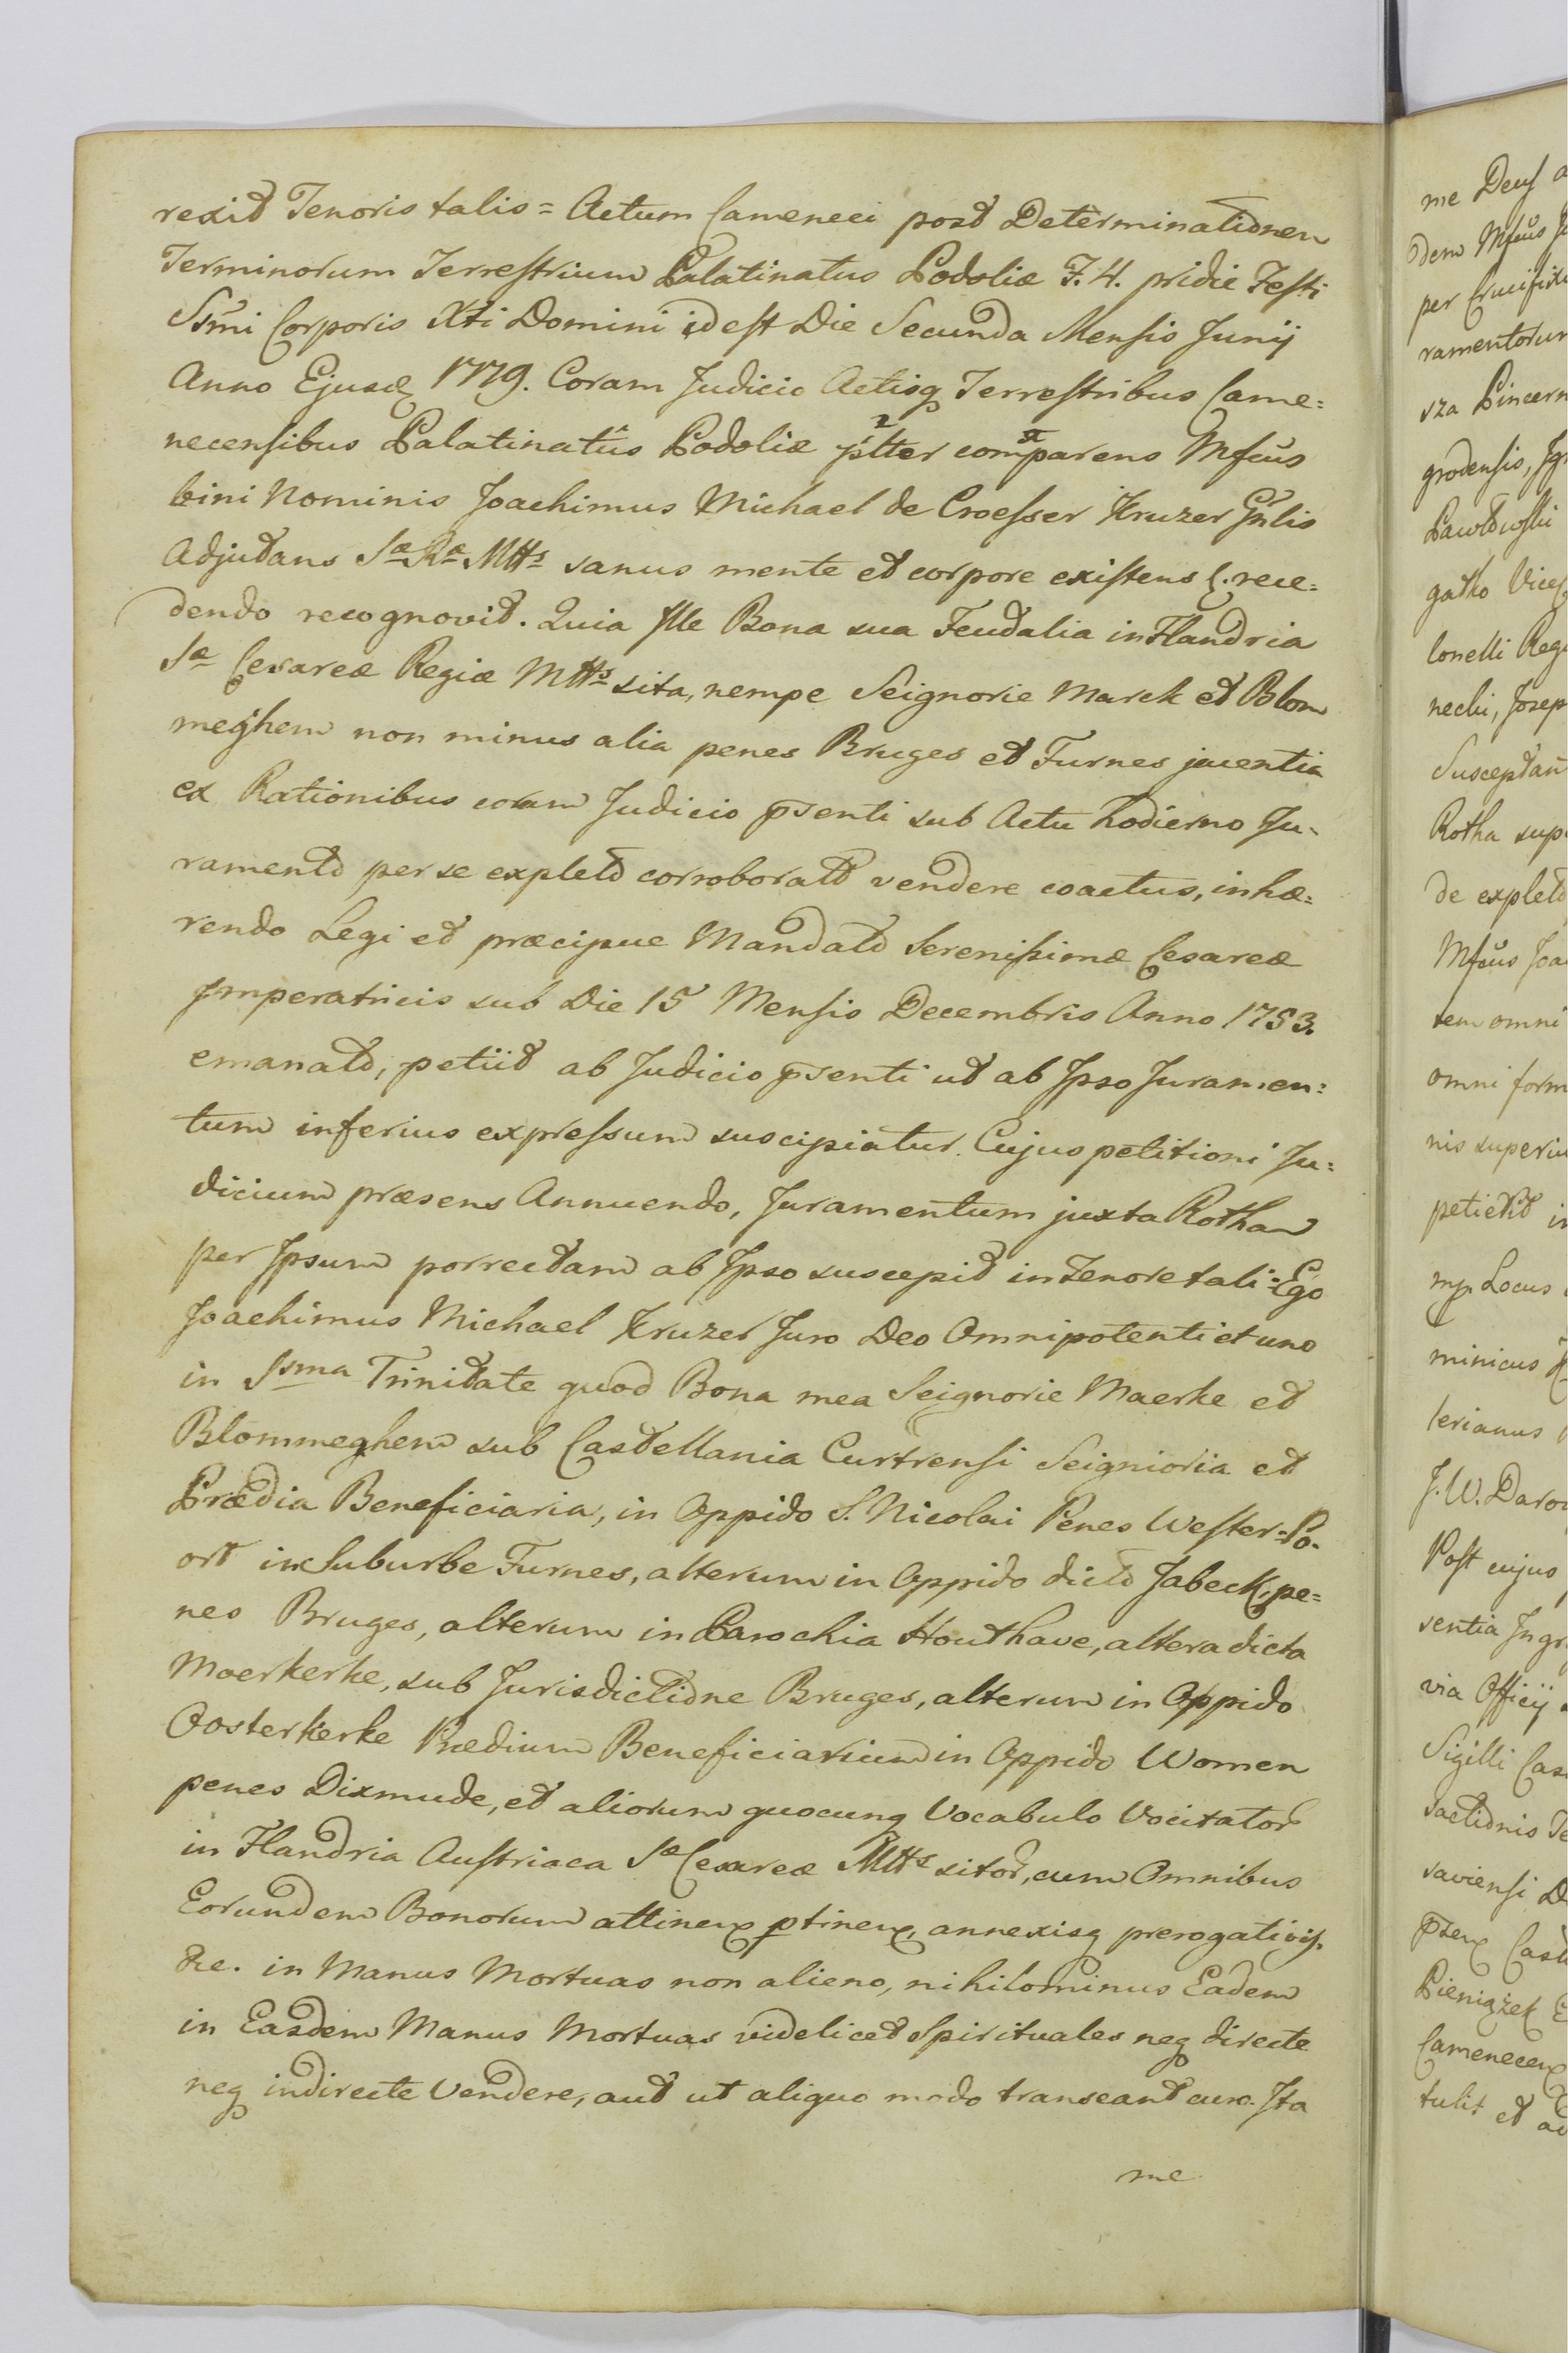 rexit Tenoris talis = Actum Cameneci post Determinationem
Terminorum Terrestrium Palatinatus Podoliæ F. 4. pridie Festi
Ssmi Corporis Xti Domini id est Die Secunda Mensis Junij
Anno Ejusd 1779. Coram Judicio Actisq Terrestribus Came=
necensibus Palatinatûs Podoliæ psltter comparens Mfcus
bini Nominis Joachimus Michael de Croesser Kruzer Gnlis
Adjutans Sæ Ræ Mttis sanus mente et corpore existens rece=
dendo recognovit. Quia Ille Bona sua Feudalia in Flandria
Sæ Cesareæ Regiæ Mttis sita, nempe Seignorie Marck et Blom
meghem non minus alia penes Bruges et Furnes jacentia
ex Rationibus coram Judicio psenti sub Actu hodierno Ju-
ramento per se expleto corroborato vendere coactus, inhæ=
rendo Legi et præcipue Mandato Serenissimæ Cesareæ
Imperatricis sub Die 15 Mensis Decembris Anno 1753.
emanato, petiit ab Judicio psenti ut ab Ipso Juramen=
tum inferius expressum suscipiatur. Cujus petitioni Ju=
dicium præsens Annuendo, Juramentum juxta Rotham
per Ipsum porrectam ab Ipso suscepit in tenore tali = Ego
Joachimus Michael Kruzer Juro Deo Omnipotenti et uno
in Ssma Trinitate quod Bona mea Seignorie Maerke et
Blommeghem sub Castellania Curtrensi Seignioria et
Prædia Beneficiaria, in Oppido S. Nicolai Penes Wester=Po-
ort in Suburbe Furnes, alterum in Oppido dicto Jabeck, pe=
nes Bruges, alterum in Parochia Houthave, altera dicta
Moerkerke, sub Jurisdictione Bruges, alterum in Oppido
Oosterkerke Prædium Beneficiarium in Oppido Women
penes Dixmude, et aliorum quocunq Vocabulo Vocitator
in Flandria Austriaca Sæ Cesareæ Mttis sitor, cum Omnibus
Eorundem Bonorum attinen ptinen, annexisq prerogativis
&c. in Manus Mortuas non alieno, nihilominus Eadem
in Easdem Manus Mortuas videlicet Spirituales neq directe
neq indirecte Vendere, aut ut aliquo modo transeant curo. Ita
me
me Deus a
dem Mfcus J
per Crucifix
ramentorum
sza Pincern
grodensis, Ig
Pawłowski
gatko Vice
lonelli Reg
necki, Josep
Susceptan
Rotha sup
de expleto
Mfcus Joa
tem omni
omni form
nis superiu
petierit in
mp Locus
minicus
lerianus
J. W. Daro
Post cujus
sentia Ingr
via Officij
Sigilli Cas
sactionis Te
saviensi D
psen Cast
Pieniążek
Camenecen
tulit et ad